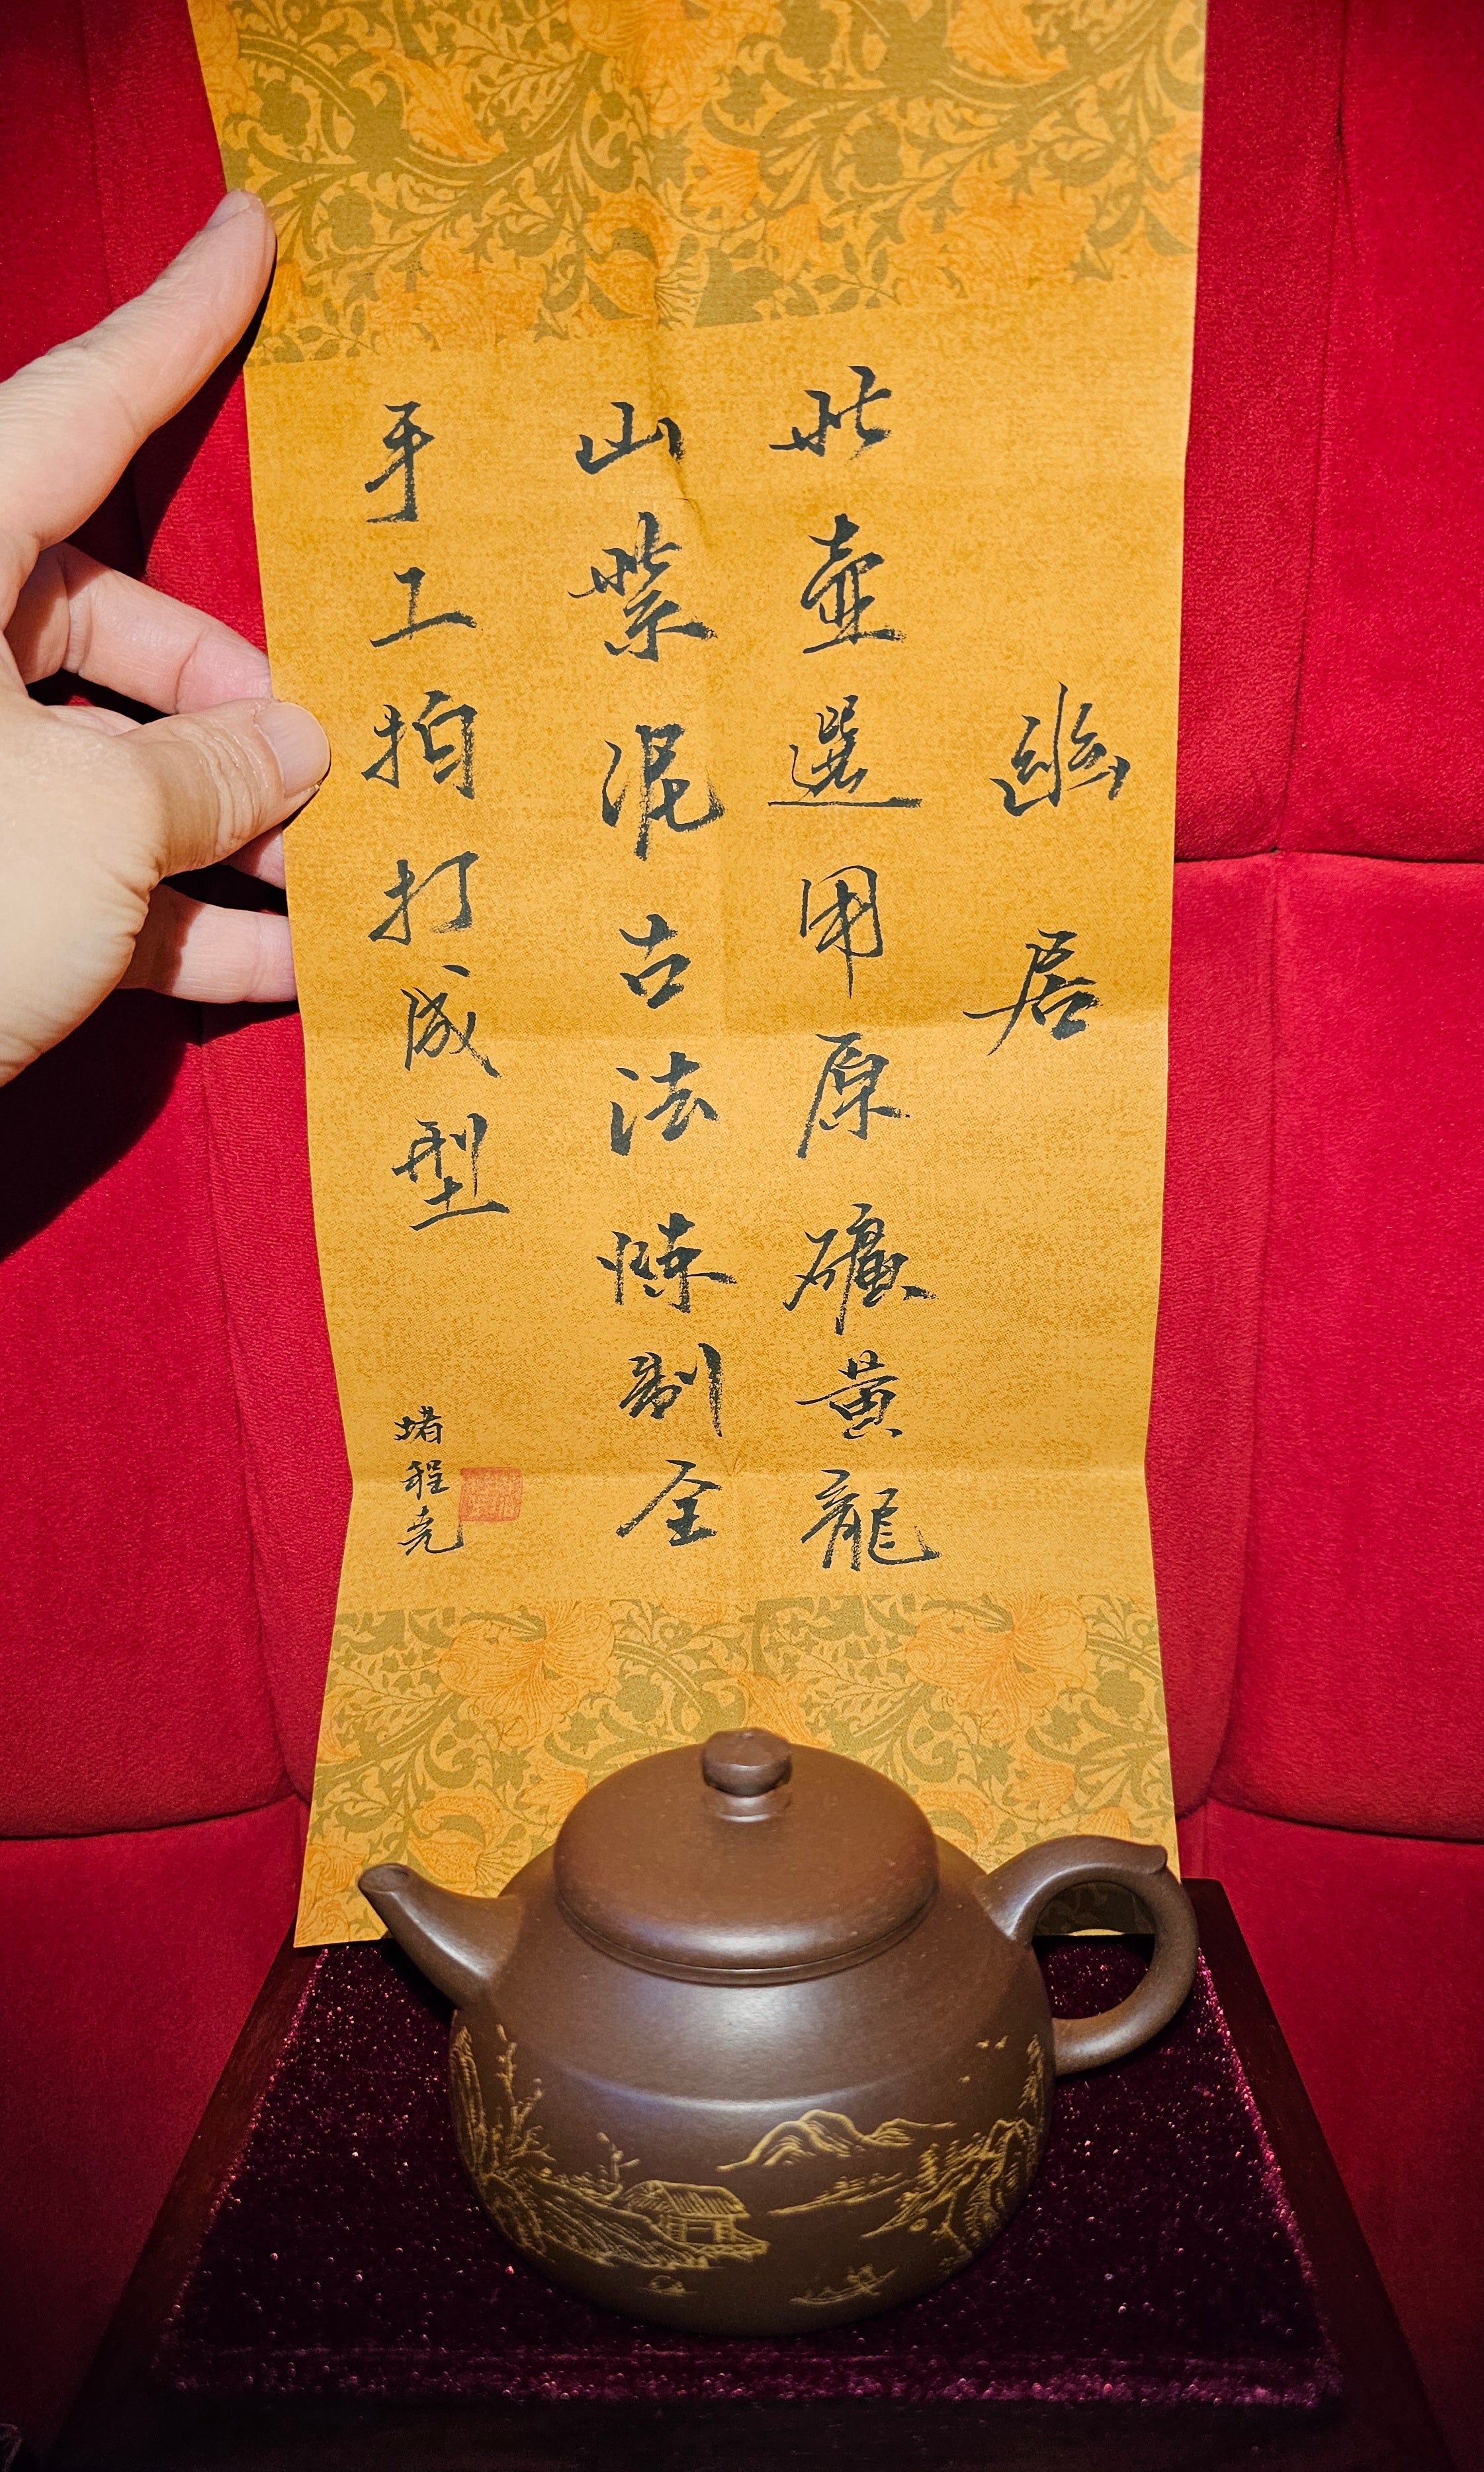 幽居
此壺選用原礦黄龍
山紫泥古法煉制全
手工拍打成型
堵程尧